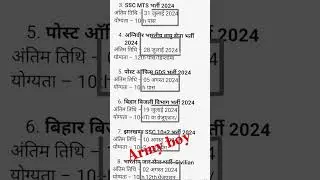 3. SSC MTS भर्ती 2024
अंतिम तिथि – 31 जुलाई 2024
योग्यता – 10th पास
4. अग्निवीर भारतीय वायु सेना भर्ती
2024
अंतिम तिथि – 28 जुलाई 2024
योग्यता – 12th पास
5. पोस्ट ऑफिस GDS भर्ती 2024
अंतिम तिथि – 05 अगस्त 2024
योग्यता – 10th पास
6. बिहार बिजली विभाग भर्ती 2024
अंतिम तिथि – 19 जुलाई 2024
योग्यता – 10th
7. झारखण्ड SSC 10+2 भर्ती 2024
अंतिम तिथि – 10 अगस्त
Army boy
8. भारतीय
Civilian
02 अगस्त 2024
योग्यता – 10th,12th
5. पोस्ट ऑ
अंतिम तिथि
योग्यता – 10
6. बिहार बि
अंतिम तिथि
योग्यता – 10